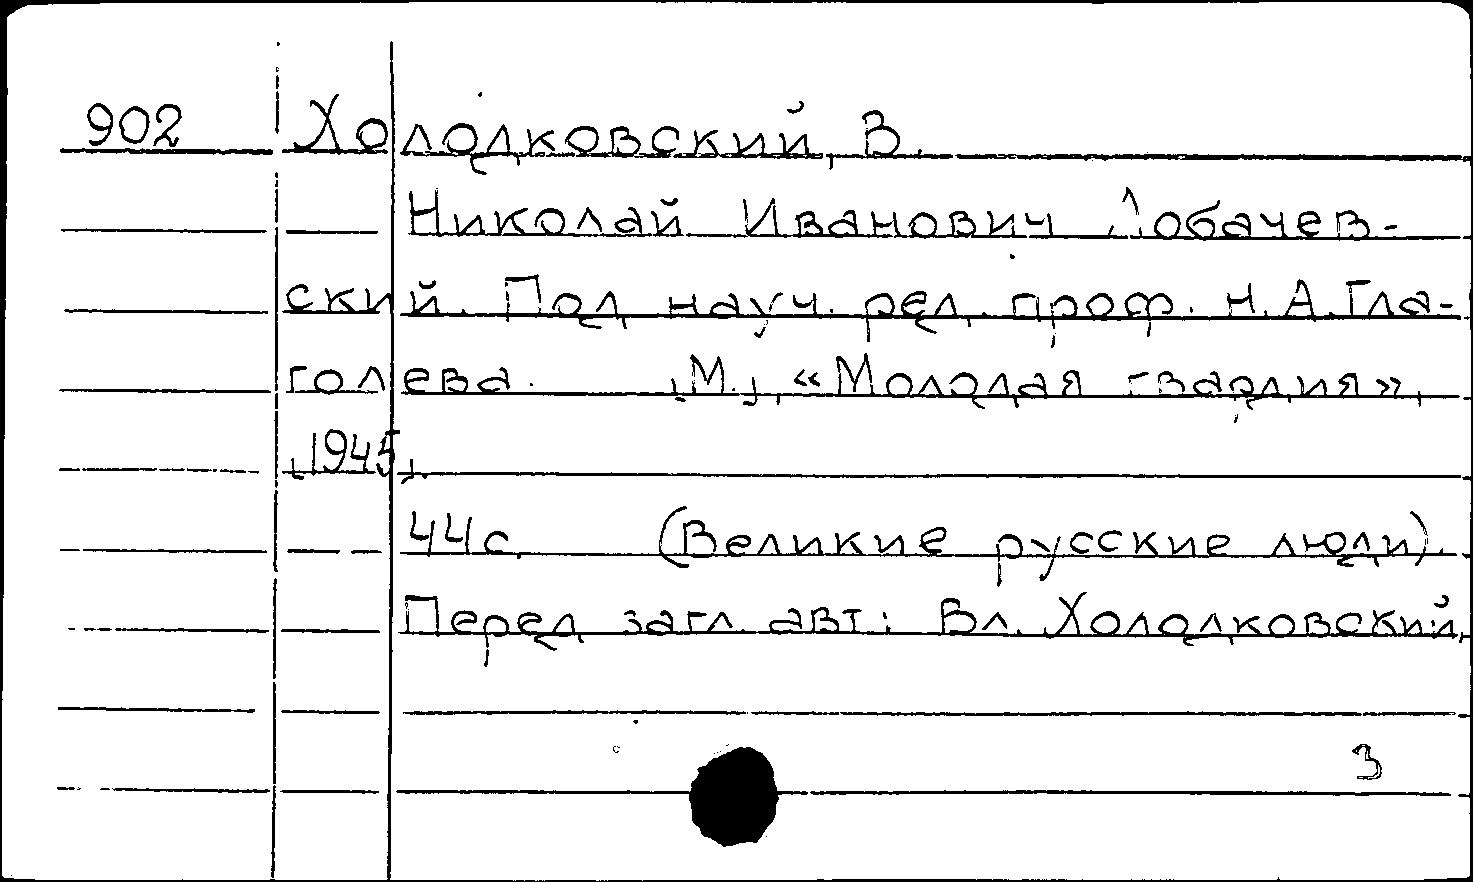 902 Холодковский, В.
Николай Иванович Лобачев-
ский. Под науч. ред. проф. Н.А.Гла-
голева. [М.], «Молодая гвардия»,
[1945].
44 с. (Великие русские люди).
Перед загл. авт.: Вл. Холодковский.
3